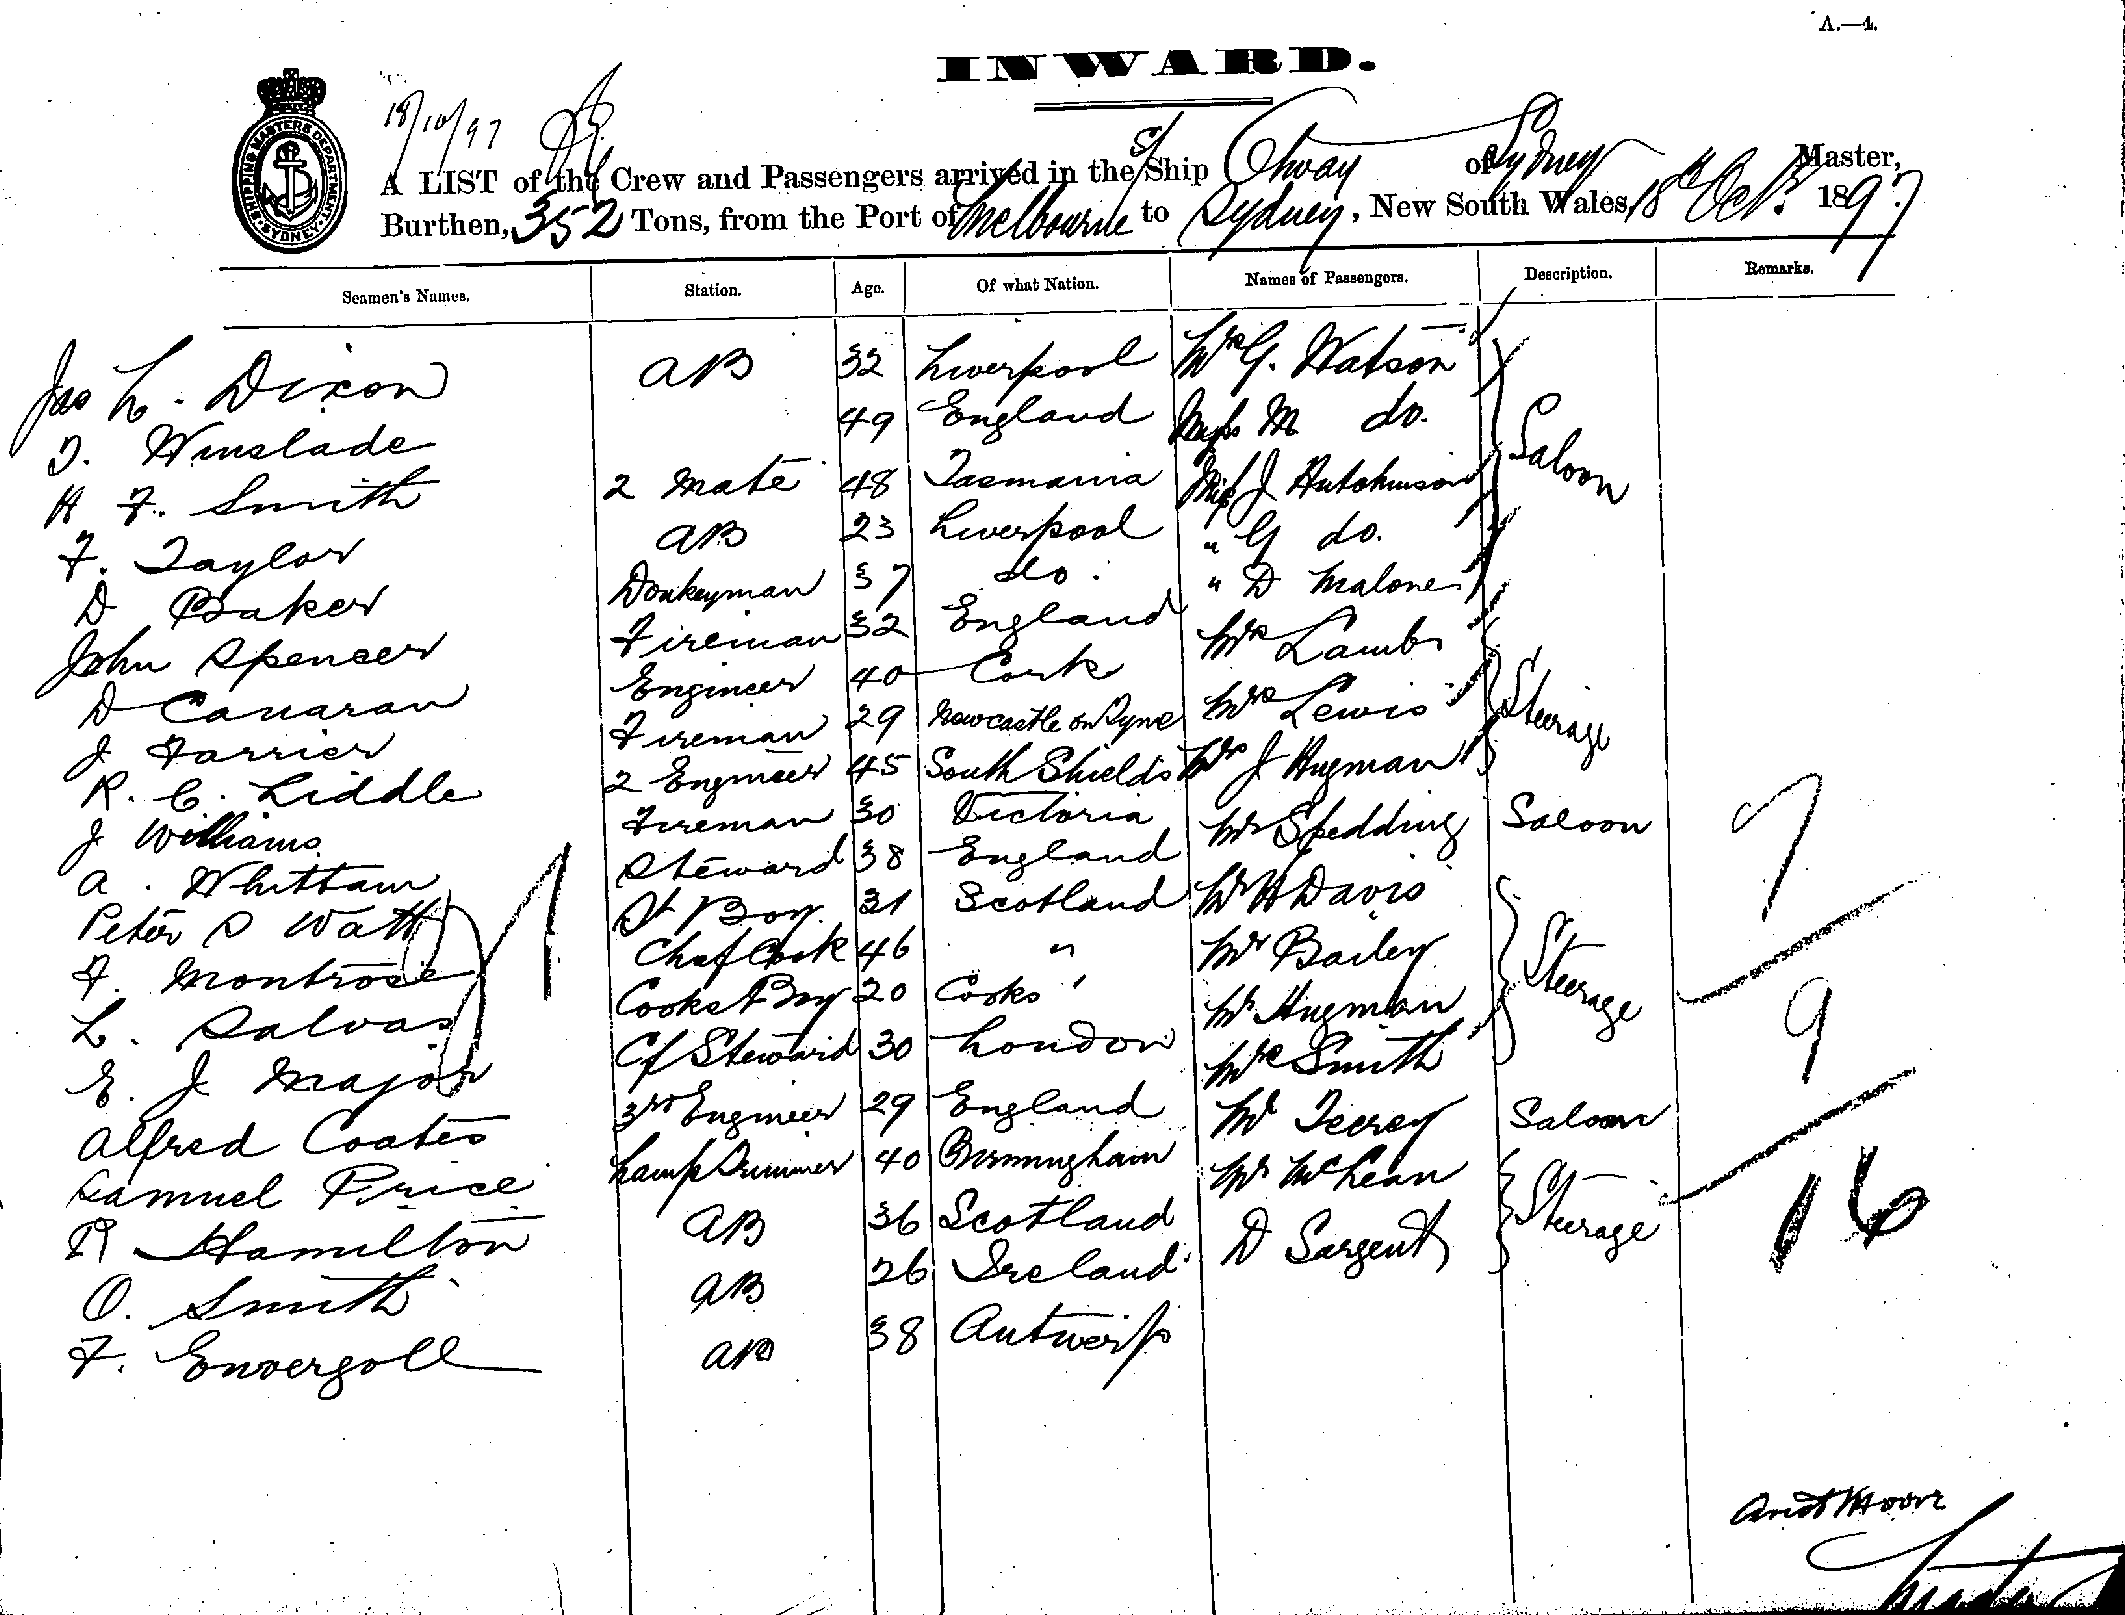 A.—4.
INWARD.
18/10/97
SHIPPING MASTERS DEPARTMENT SYDNEY
A LIST of the Crew and Passengers arrived in the S/Ship Otway of Sydney Master,
Burthen, 352 Tons, from the Port of Melbourne to Sydney, New South Wales, 18th Octr. 1897
Seamen's Names. Station. Age. Of what Nation. Names of Passengers. Description. Remarks.
Jas L. Dixon AB 32 Liverpool Mrs G. Watson
D. Winslade 49 England Miss M do. Saloon
H F. Smith 2 Mate 48 Tasmania Miss J Hutchinson
F. Taylor AB 23 Liverpool " G do.
D Baker Donkeyman 37 do. " D Malone
John Spencer Fireman 32 England Mrs Lamb
D Canavan Engineer 40 Cork Mrs Lewis Steerage
J Farrier Fireman 29 Newcastle on Tyne Mrs J Hugman
R. C. Liddle 2 Engineer 45 South Shields Mr Spedding Saloon 7
J Williams Fireman 30 Victoria Mr H Davis
A. Whittam Steward 38 England Mr Bailey Steerage
Peter S Watt St Boy 31 Scotland Mr Hugman
F. Montrose Chef Cook 46 " Mrs Smith 9
L. Salvas Cooks Boy 20 Cooks' Mr Terrey Saloon
E. J Major Cf Steward 30 London Mr McLean
Alfred Coates 3rd Engineer 29 England D Sargent Steerage 16
Samuel Price Lamp Trimmer 40 Birmingham
R Hamilton AB 36 Scotland
O. Smith AB 26 Ireland
F. Envergoll AB 38 Antwerp